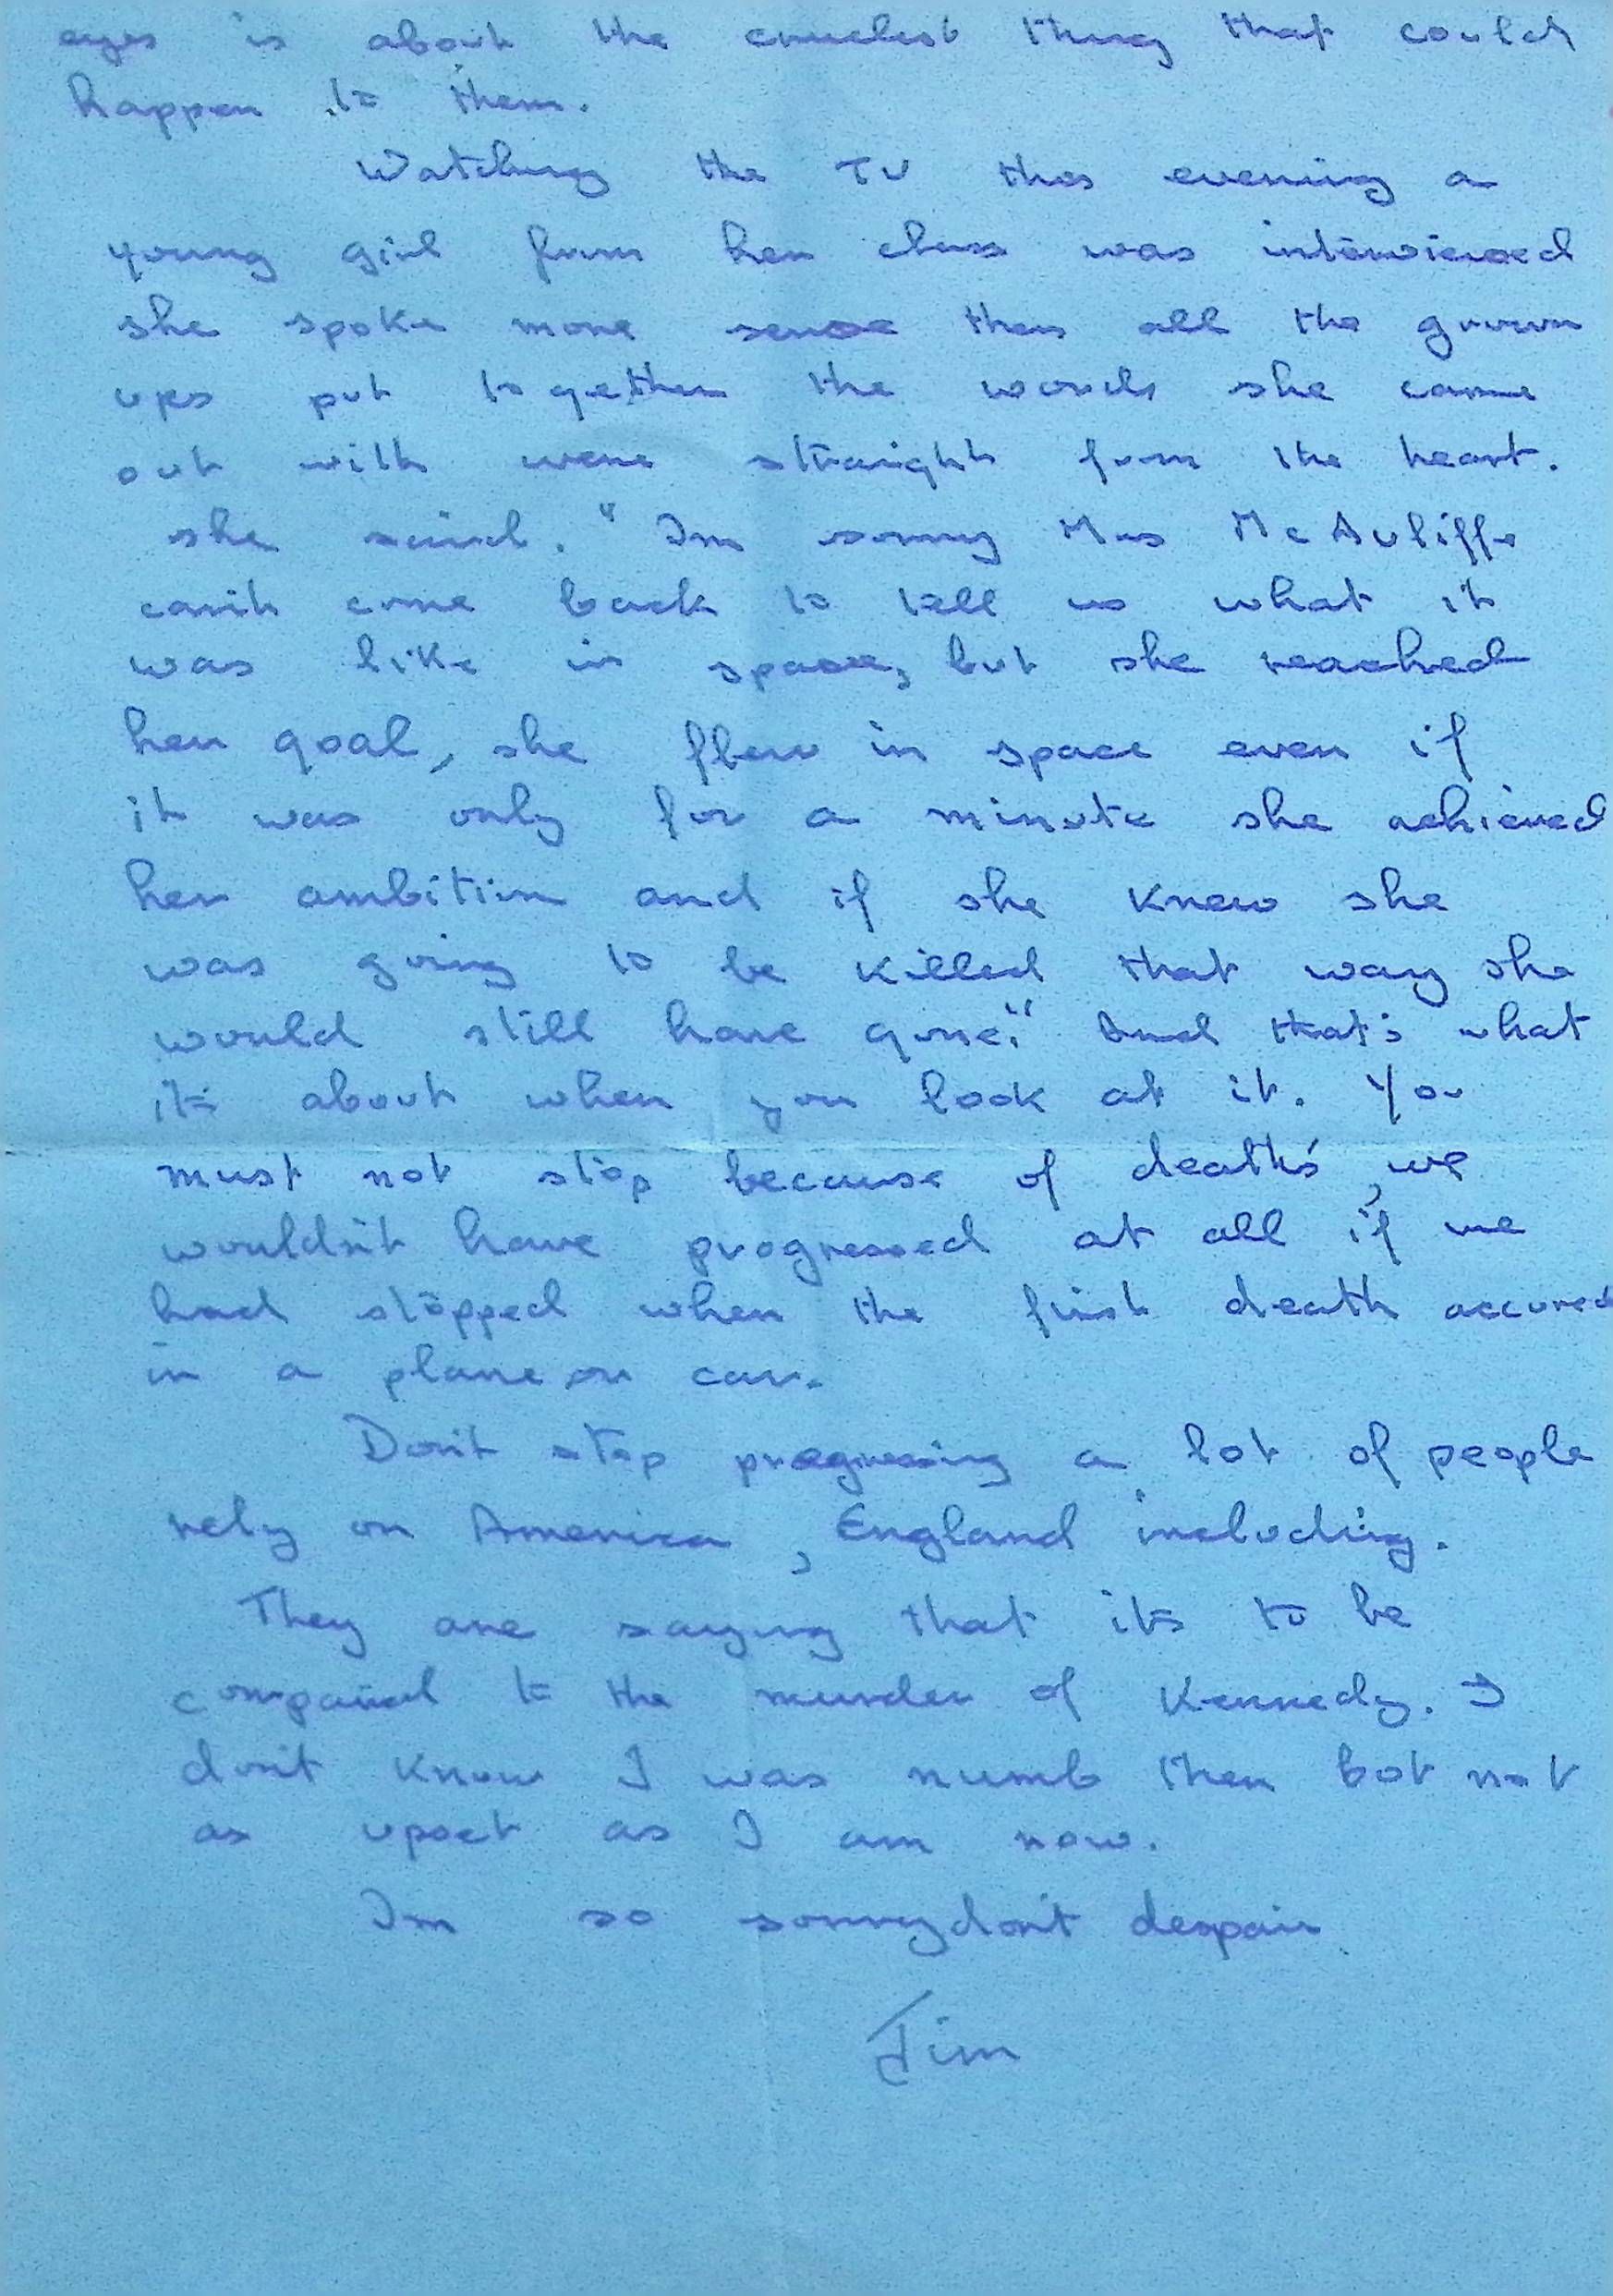 eyes is about the cruelest thing that could
happen to them.
Watching the TV this evening a
young girl from her class was interviewed
she spoke more sense then all the grown
ups put together the words she came
out with were straight from the heart.
she said. "Im sorry Mrs McAuliffe
can't come back to tell us what it
was like in space, but she reached
her goal, she flew in space even if
it was only for a minute she achieved
her ambition and if she knew she
was going to be killed that way she
would still have gone." And that's what
its about when you look at it. You
must not stop because of death's, we
wouldn't have progressed at all if we
had stopped when the first death accured
in a plane or car.
Don't stop progressing a lot of people
rely on America, England including.
They are saying that its to be
compaired to the murder of Kennedy. I
don't know I was numb then but not
as upset as I am now.
Im so sorry don't despair
Jim